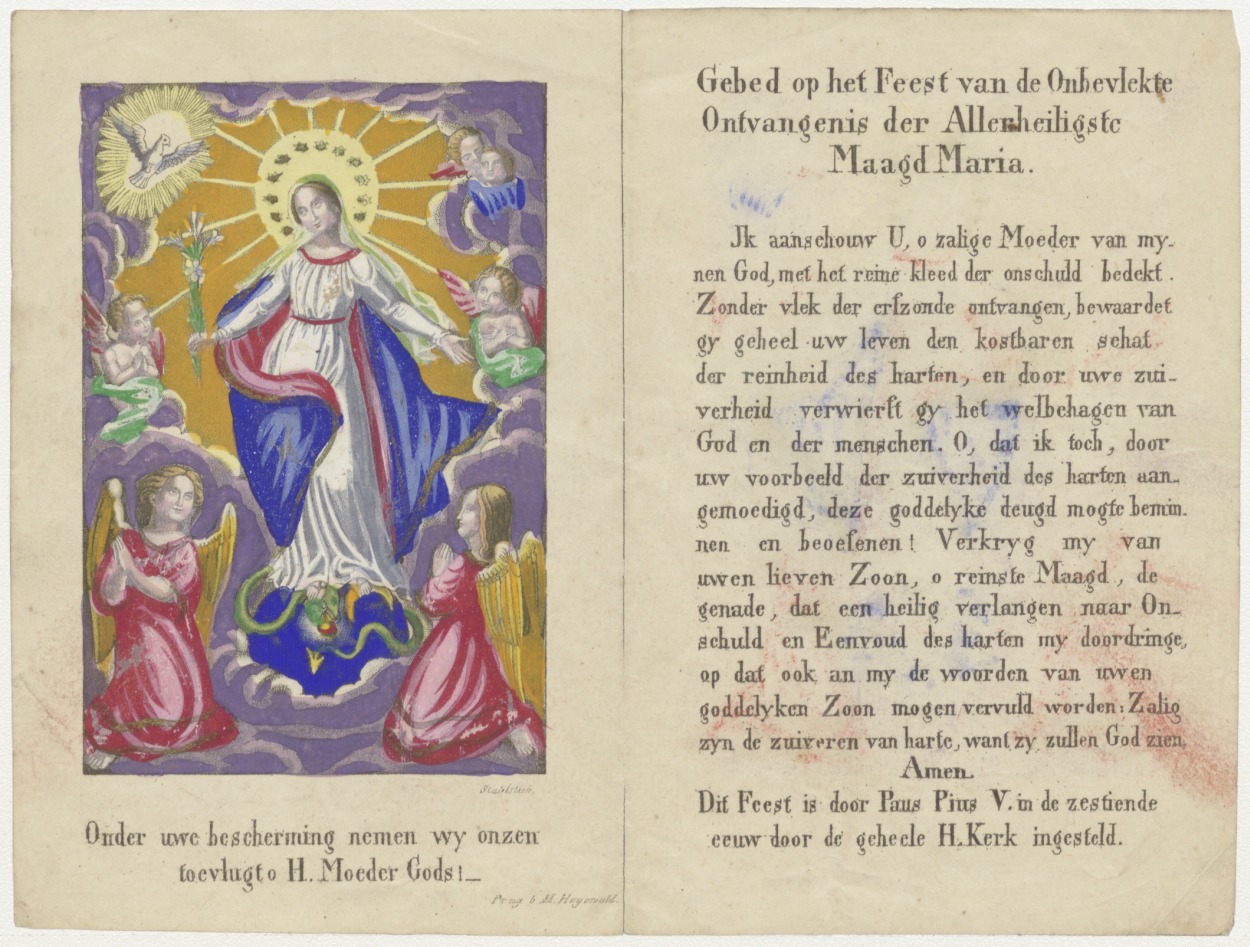 Stahlstich.
Onder uwe bescherming nemen wy onzen
toevlugt o H. Moeder Gods!_
Prag b. M.
Gebed op het Feest van de Onbevlekte
Ontvangenis der Allerheiligste
Maagd Maria.
Ik aanschouw U, o zalige Moeder van my-
nen God, met het reine kleed der onschuld bedekt.
Zonder vlek der erfzonde ontvangen, bewaardet
gy geheel uw leven den kostbaren schat
der reinheid des harten, en door uwe zui-
verheid verwierft gy het welbehagen van
God en der menschen. O, dat ik toch, door
uw voorbeeld der zuiverheid des harten aan-
gemoedigd, deze goddelyke deugd mogte bemin-
nen en beoefenen! Verkryg my van
uwen lieven Zoon, o reinste Maagd, de
genade, dat een heilig verlangen naar On-
schuld en Eenvoud des harten my doordringe,
op dat ook an my de woorden van uwen
goddelyken Zoon mogen vervuld worden: Zalig
zyn de zuiveren van harte, want zy zullen God zien.
Amen.
Dit Feest is door Paus Pius V. in de zestiende
eeuw door de geheele H. Kerk ingesteld.